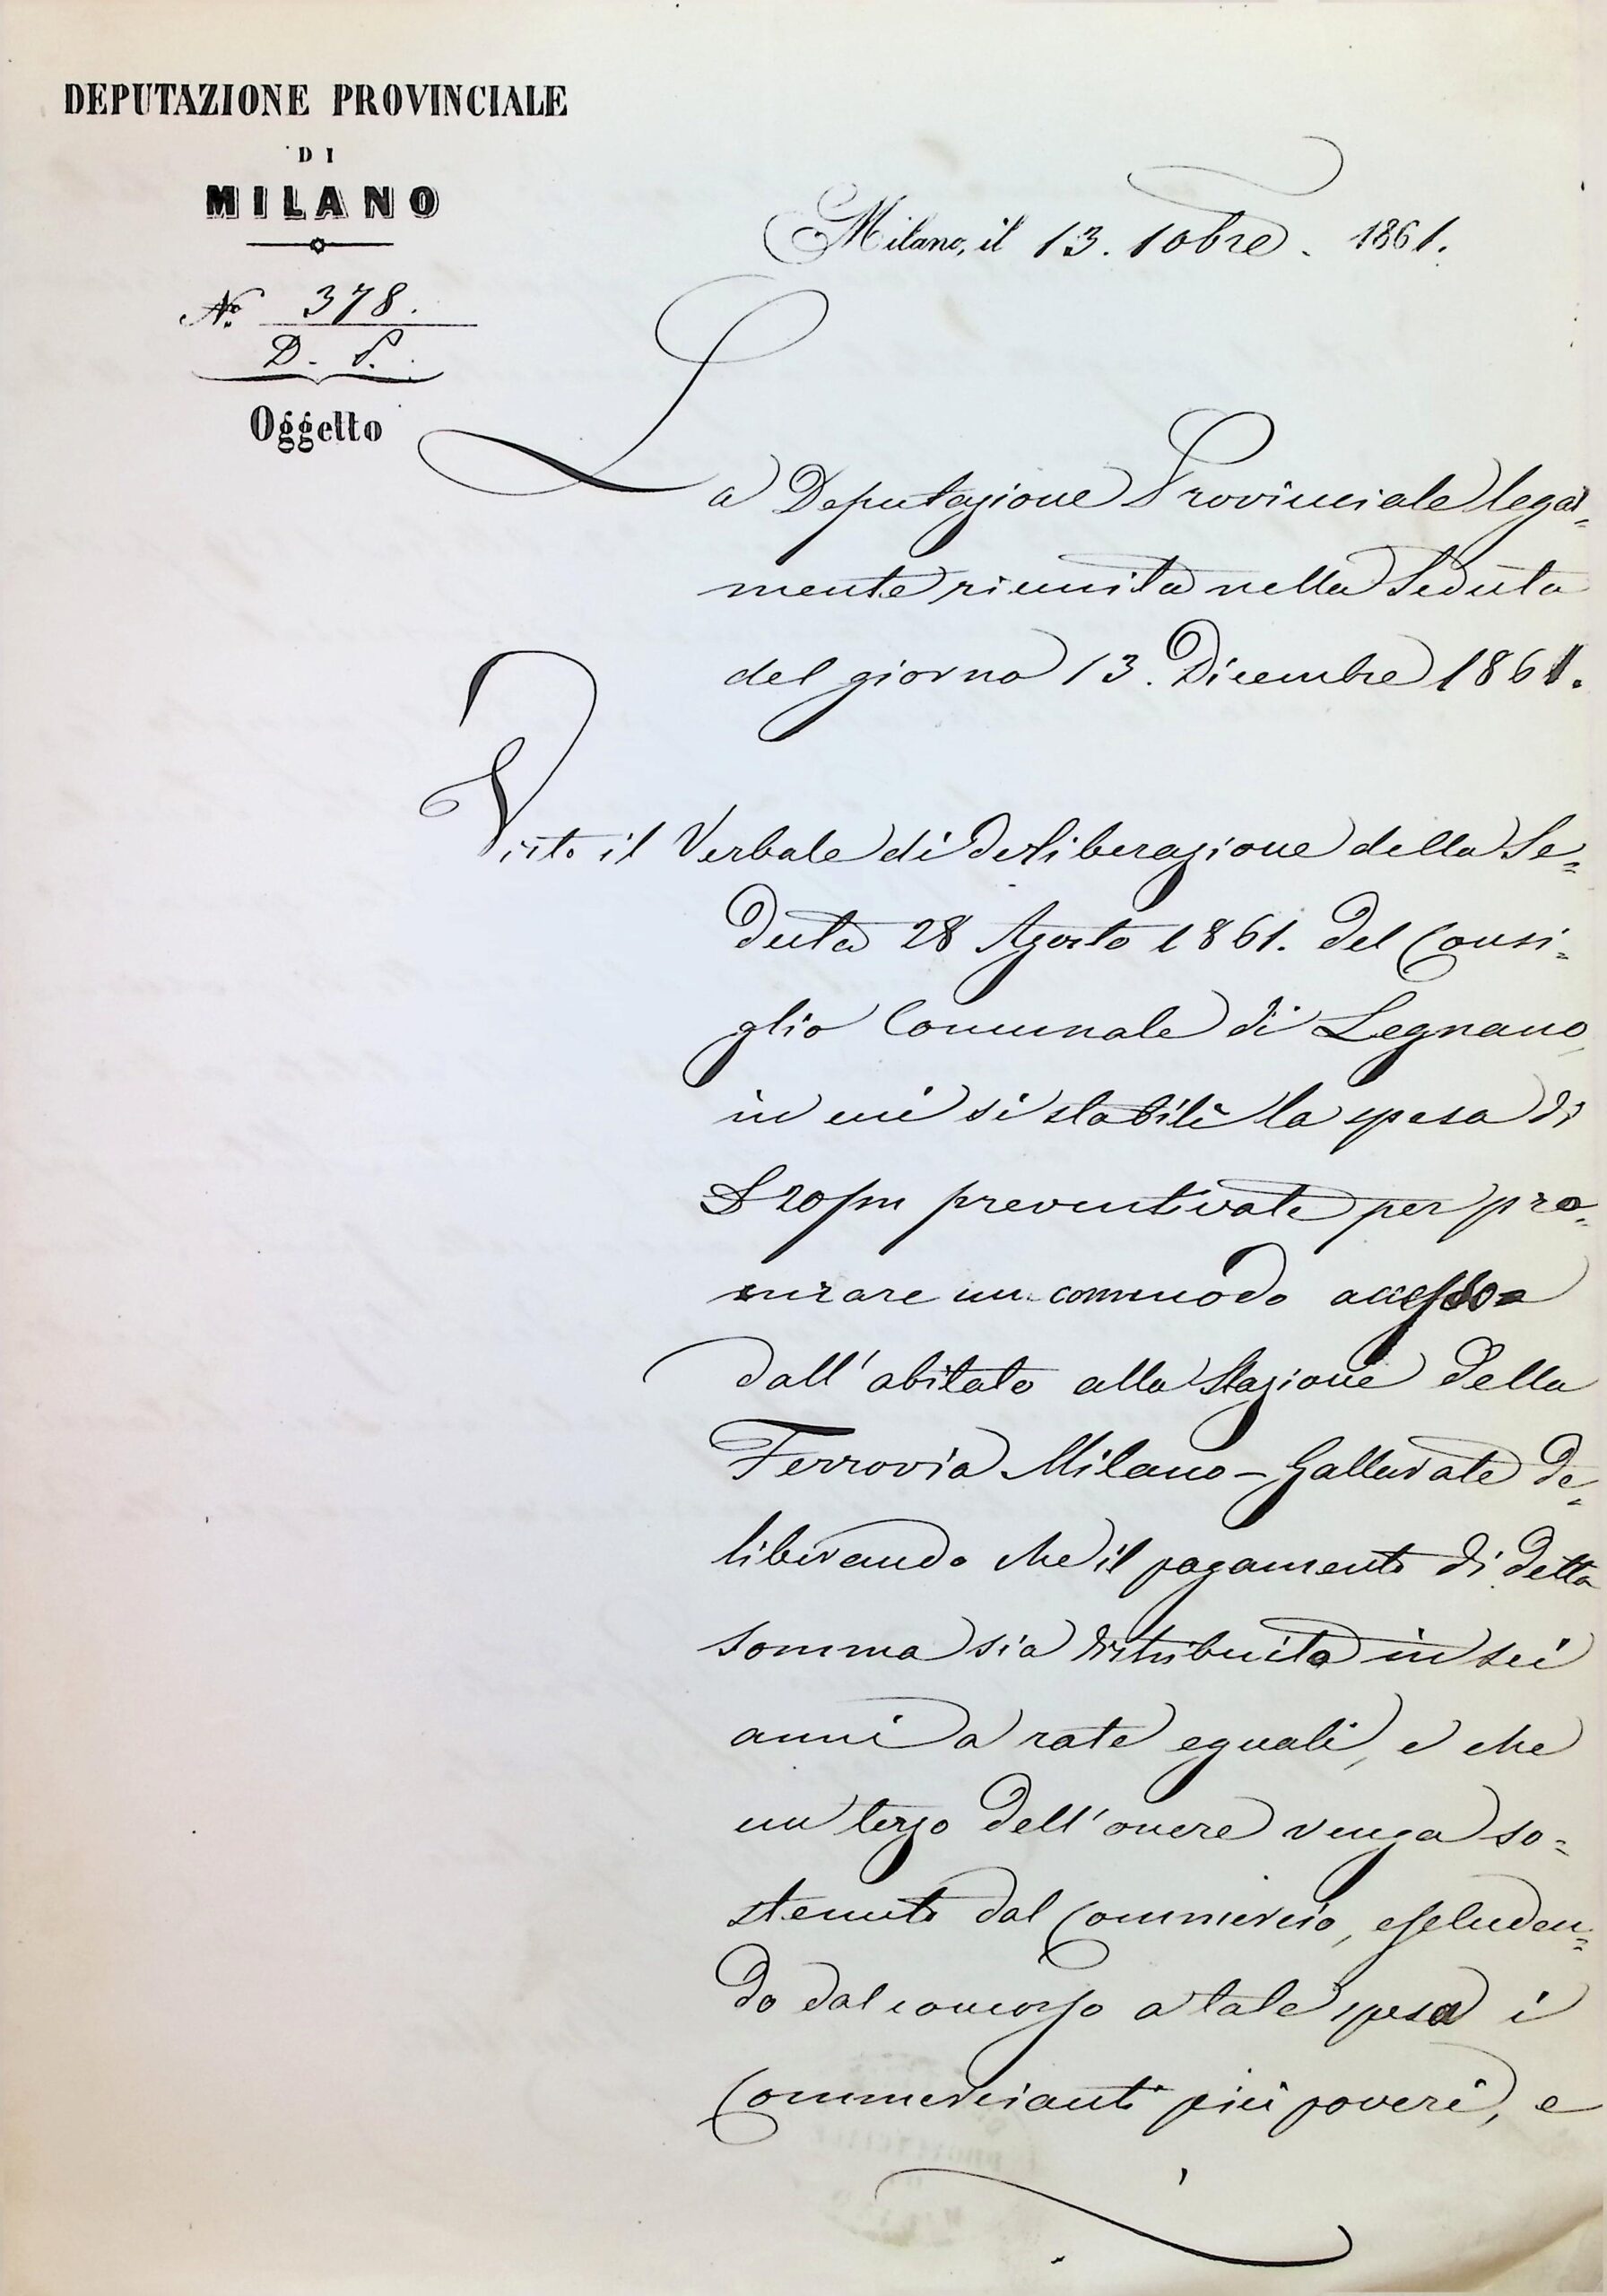 DEPUTAZIONE PROVINCIALE
DI
MILANO
Milano, il 13. 10bre. 1861.
No. 378.
D. P.
Oggetto
La Deputazione Provinciale legal=
mente riunita nella Seduta
del giorno 13. Dicembre 1861.
Visto il Verbale di deliberazione della Se=
duta 28 Agosto 1861. del Consi=
glio Comunale di Legnano,
in cui si stabilì la spesa di
£ 20/m preventivate per pro=
curare un commodo accesso
dall'abitato alla Stazione della
Ferrovia Milano-Gallarate de=
liberando che il pagamento di detta
somma sia distribuita in sei
anni a rate eguali, e che
un terzo dell'onere venga so=
stenuto dal Commercio, escluden=
do dal concorso a tale spesa i
Commercianti più poveri, e